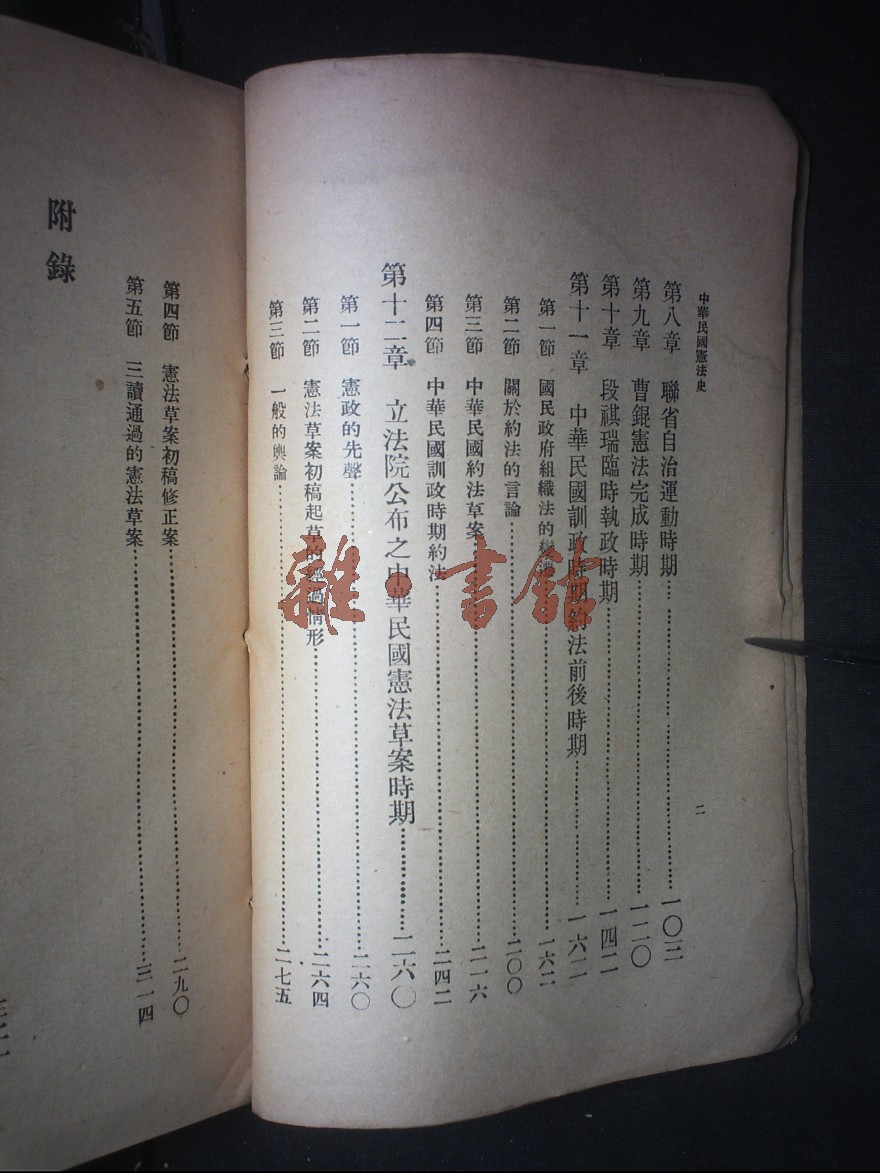 中華民國憲法史
二
第八章 聯省自治運動時期………一〇三
第九章 曹錕憲法完成時期………一二〇
第十章 段祺瑞臨時執政時期………一四二
第十一章 中華民國訓政時期約法前後時期………一六二
第一節 國民政府組織法的變遷………一六二
第二節 關於約法的言論………二〇〇
第三節 中華民國約法草案………二一六
第四節 中華民國訓政時期約法………二四二
第十二章 立法院公布之中華民國憲法草案時期………二六〇
第一節 憲政的先聲………二六〇
第二節 憲法草案初稿起草的經過情形………二六四
第三節 一般的輿論………二七五
第四節 憲法草案初稿修正案………二九〇
第五節 三讀通過的憲法草案………三一四
附錄
雜·書館